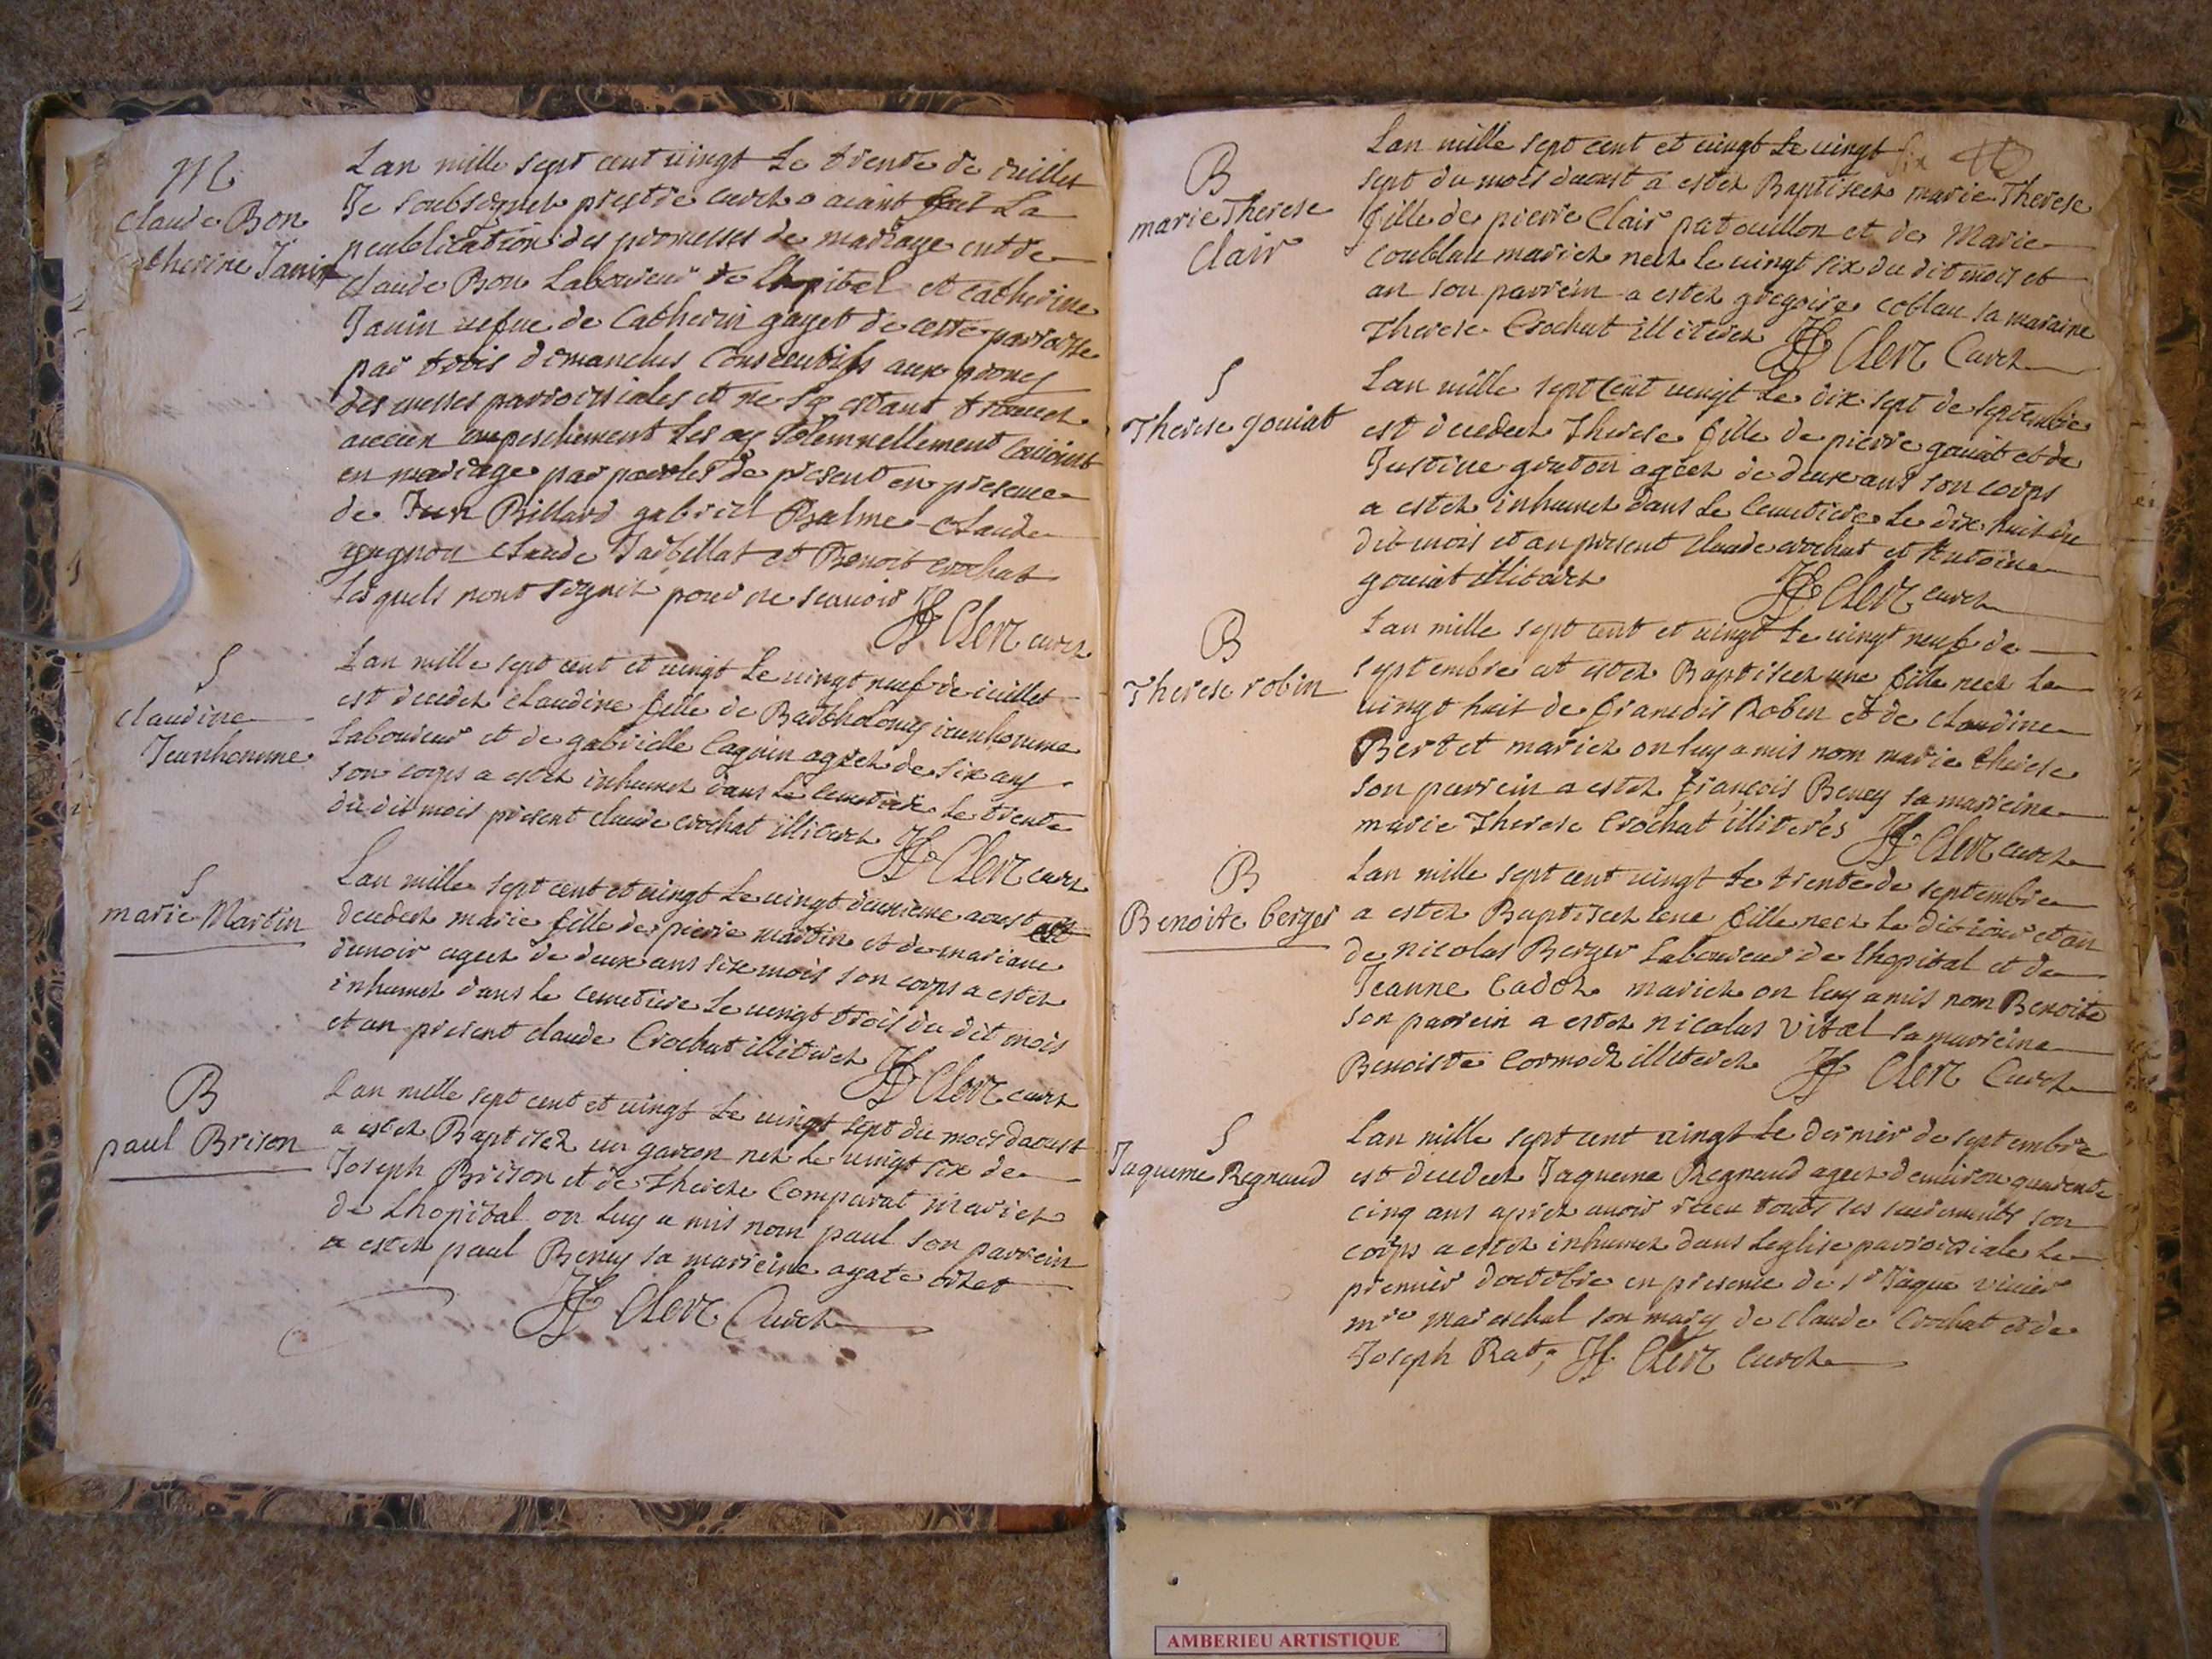 M
Claude Bon
Catherine Janin
Lan mille sept cent uingt Le trente de iuillet
Je soubsignez prestre curez aiant fait La
peublication des promesses de mariage entre
Claude Bon Laboureur de Lhopital et Catherine
Janin uefue de Catherin gayet de ceste parroisse
par trois dimanches Consecutifs aux prones
des messes parroissiales et ne sy estant trouuez
aucun empeschement Les ay solemnellement Conioint
en mariage par paroles de present en presence
de Jean Billard gabriel Balme Claude
gugnon Claude Jarbillat et Benoit Crochat
Lesquels nont signez pour ne scauoir JJ Clerc curez
S
Claudine
Jeunhomme
Lan mille sept cent et uingt Le uingt neuf de iuillet
est decedez Claudine fille de Bartholomy ieunhomme
Laboureur et de gabrielle Cagnin ageez de six ans
son corps a estez inhumez dans Le Cemetiere Le trente
du dit mois present claude crochat illiterez JJ Clerc curez
S
marie Martin
Lan mille sept cent et uingt Le uingt deuxieme aoust est
decedeez marie fille de pierre martin et de mariane
dunoir ageez de deux ans six mois son corps a estez
inhumez dans Le cemetiere Le uingt trois du dit mois
et an present claude Crochat illiterez JJ Clerc curez
B
paul Brison
Lan mille sept cent et uingt Le uingt sept du mois daoust
a estez Baptisez un garcon nez Le uingt six de
Joseph Brison et de Therese Comparat mariez
de Lhopital on Luy a mis nom paul son parrein
a estez paul Beney sa marreine agate
JJ Clerc Curez
B
marie Therese
Clair
Lan mille sept cent et uingt Le uingt six
sept du mois daoust a estez Baptiseez marie Therese
fille de pierre Clair patouillon et de Marie
Coublau mariez neez le uingt six du dit mois et
an son parrein a estez gregoire coblau sa maraine
Therese Crochat illiterez JJ Clerc Curez
S
Therese gouiat
Lan mille sept Cent uingt Le dix sept de septembre
est decedeez Therese fille de pierre gouiat et de
Justine ageez de deux ans son corps
a estez inhumez dans Le Cemetiere Le dix huit du
dit mois et an present Claude crochat et Antoine
gouiat illiterez JJ Clerc curez
B
Therese robin
Lan mille sept cent et uingt Le uingt neuf de
septembre at estez Baptiseez une fille neez Le
uingt huit de francois Robin et de Claudine
Bertet mariez on luy a mis nom marie therese
son parrein a estez francois Beney sa marreine
marie Therese Crochat illiterés JJ Clerc curez
B
Benoite berger
Lan mille sept cent uingt Le trente de septembre
a estez Baptiseez une fille neez Le dit iour et an
de nicolas Berger Laboureur de lhopital et de
Jeanne Cadoz mariez on luy a mis nom Benoite
son parrein a estez nicolas Vital sa marreine
Benoiste Cormoz illiterez JJ Clerc Curez
S
Jaqueme Regnaud
Lan mille sept cent uingt Le dernier de septembre
est decedeez Jaqueme Regnaud ageez denuiron quarente
cinq ans aprez auoir receu touts ses sacrements son
corps a estez inhumez dans Leglise parroissiale Le
premier doctobre en presence de sr Jaque
mre mareschal son mary de Claude Crochat et de
Joseph Rat, JJ Clerc curez
AMBERIEU ARTISTIQUE